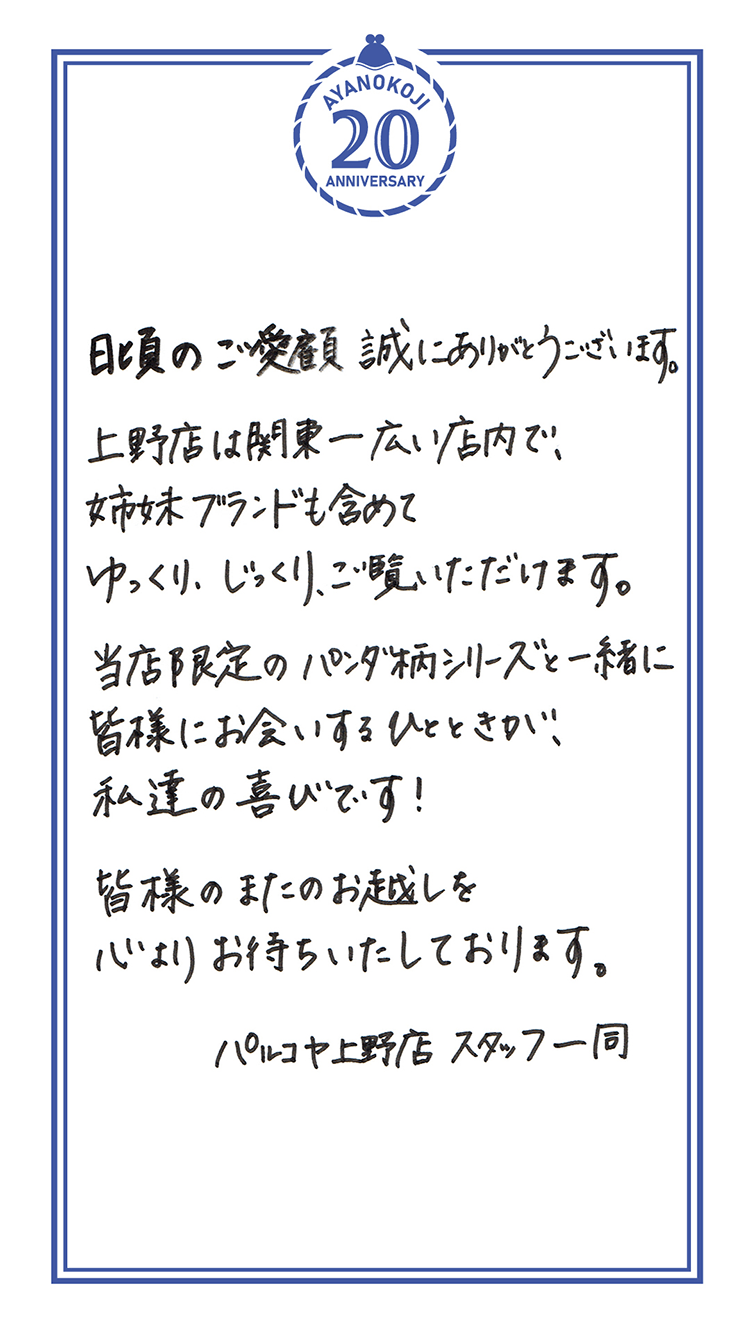 AYANOKOJI
20
ANNIVERSARY
日頃のご愛顧 誠にありがとうございます。
上野店は関東一広い店内で、
姉妹ブランドも含めて
ゆっくり、じっくり、ご覧いただけます。
当店限定のパンダ柄シリーズと一緒に
皆様にお会いするひとときが、
私達の喜びです!
皆様のまたのお越しを
心よりお待ちいたしております。
パルコヤ上野店 スタッフ一同